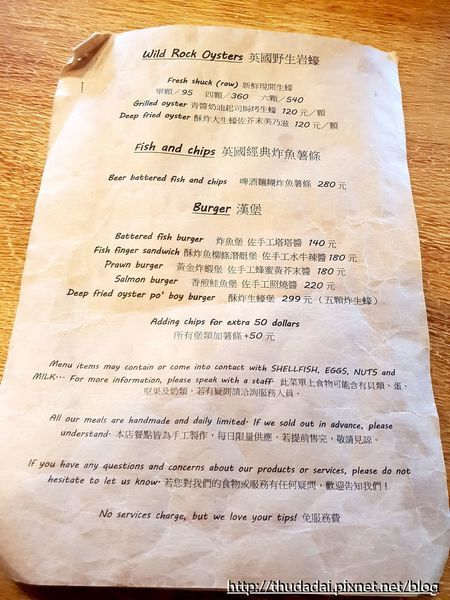 Wild Rock Oysters 英國野生岩蠔
Fresh shuck (raw) 新鮮現開生蠔
單顆／95 四顆／360 六顆／540
Grilled oyster 青醬奶油起司焗烤生蠔 120 元／顆
Deep fried oyster 酥炸大生蠔佐芥末美乃滋 120 元／顆
Fish and chips 英國經典炸魚薯條
Beer battered fish and chips 啤酒麵糊炸魚薯條 280 元
Burger 漢堡
Battered fish burger 炸魚堡 佐手工塔塔醬 140 元
Fish finger sandwich 酥炸魚柳條潛艇堡 佐手工水牛辣醬 180 元
Prawn burger 黃金炸蝦堡 佐手工蜂蜜黃芥末醬 180 元
Salmon burger 香煎鮭魚堡 佐手工照燒醬 220 元
Deep fried oyster po' boy burger 酥炸生蠔堡 299 元（五顆炸生蠔）
Adding chips for extra 50 dollars
所有堡類加薯條 +50 元
Menu items may contain or come into contact with SHELLFISH, EGGS, NUTS and
MILK... For more information, please speak with a staff. 此菜單上食物可能含有貝類、蛋、
堅果及奶類，若有疑問請洽詢服務人員。
All our meals are handmade and daily limited. If we sold out in advance, please
understand. 本店餐點皆為手工製作，每日限量供應，若提前售完，敬請見諒。
If you have any questions and concerns about our products or services, please do not
hesitate to let us know. 若您對我們的食物或服務有任何疑問，歡迎告知我們！
No services charge, but we love your tips! 免服務費
http://thudadai.pixnet.net/blog